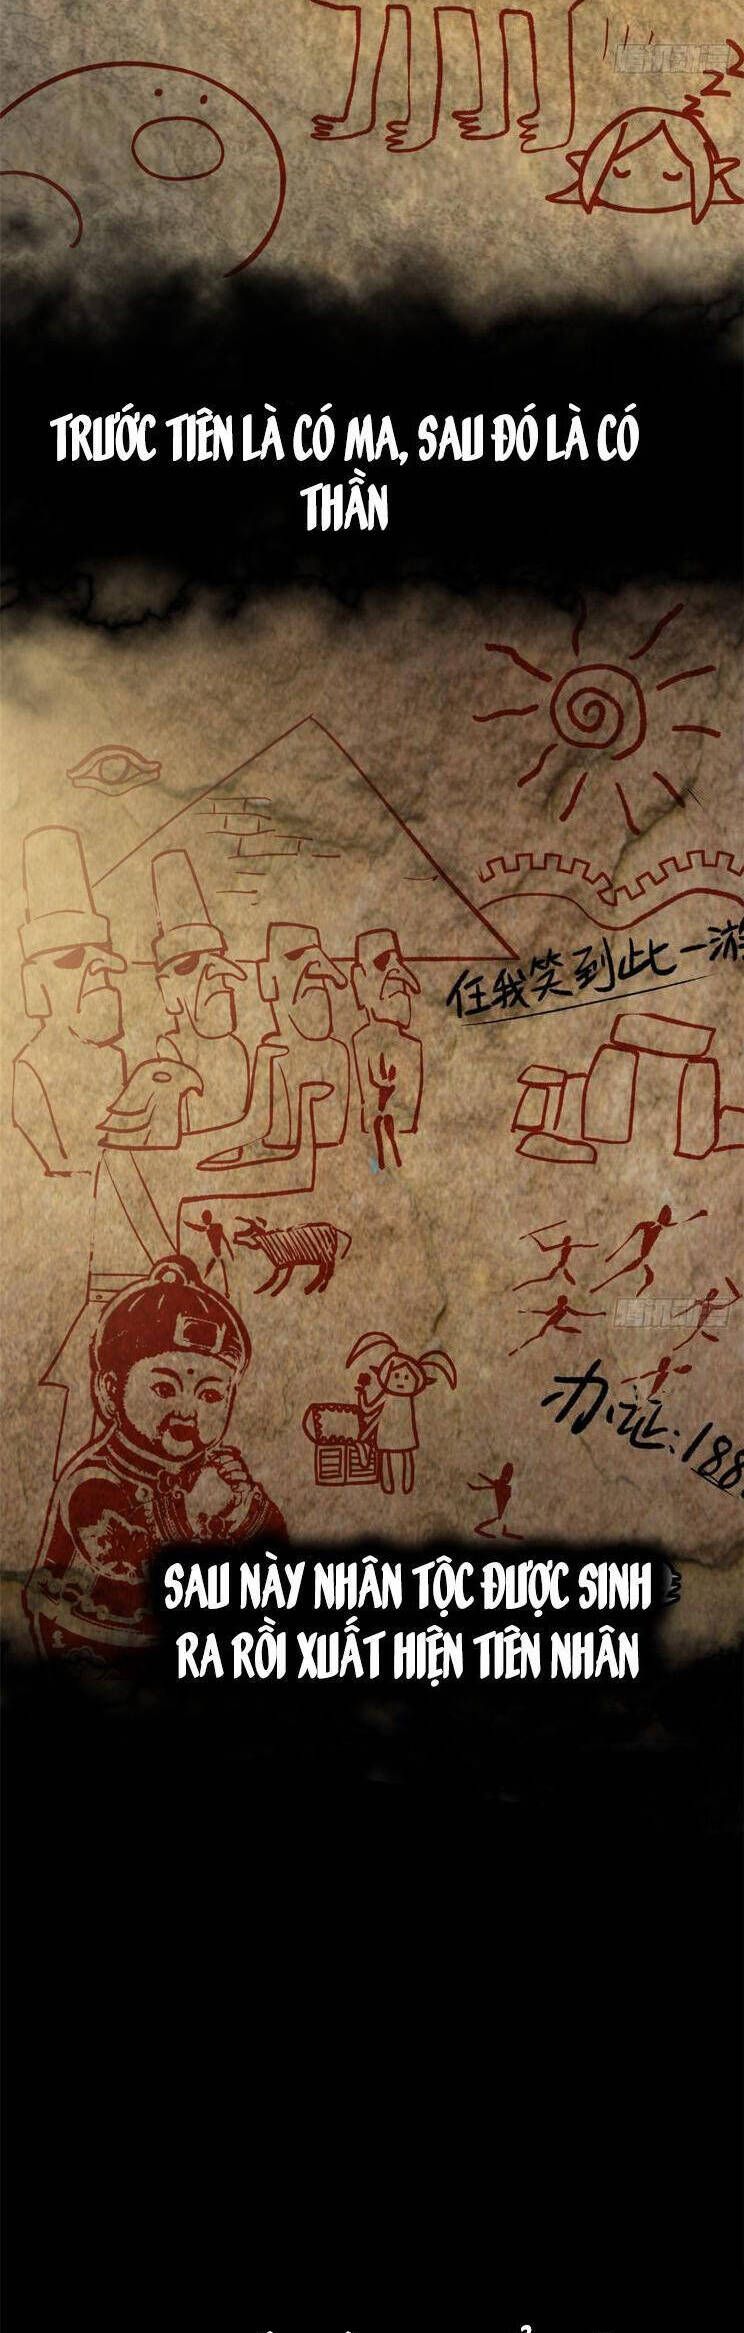 ZZZ
TRƯỚC TIÊN LÀ CÓ MA, SAU ĐÓ LÀ CÓ
THẦN
任我笑到此一游
办证:188
SAU NÀY NHÂN TỘC ĐƯỢC SINH
RA RỒI XUẤT HIỆN TIÊN NHÂN